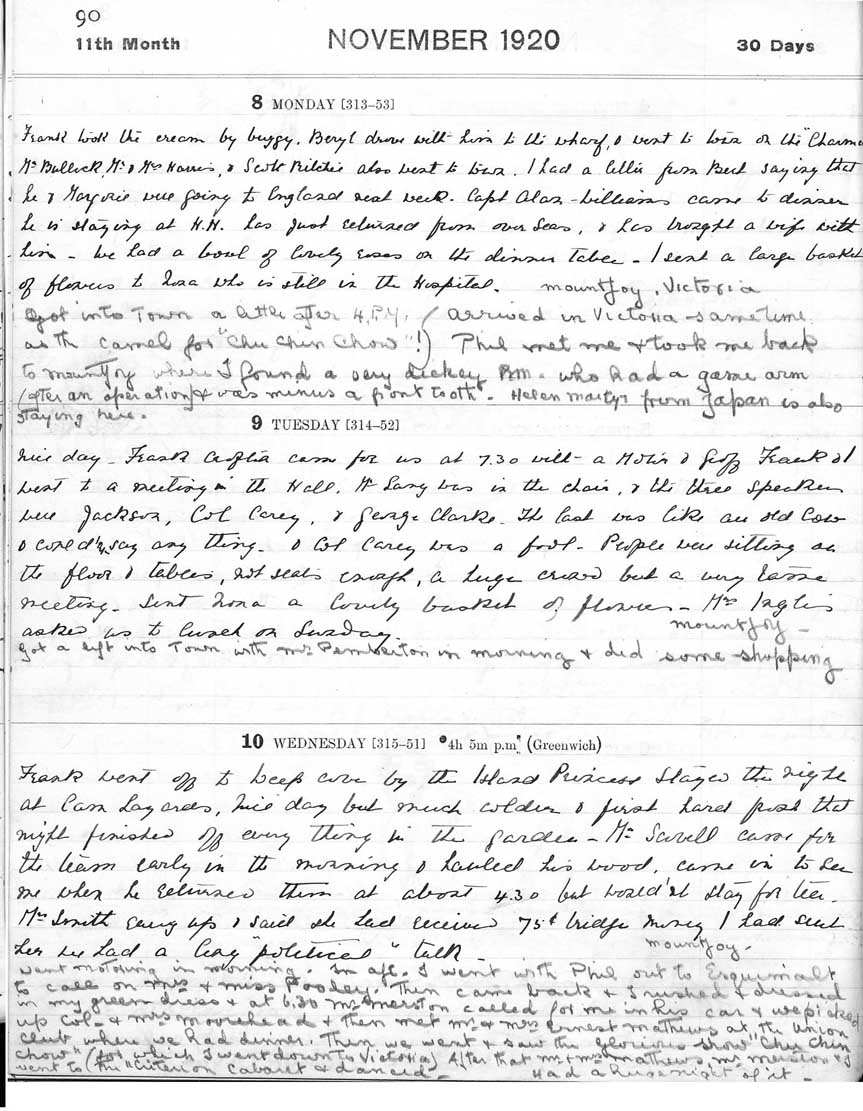 90
11th Month NOVEMBER 1920 30 Days
8 MONDAY [313–53]
Frank took the cream by buggy. Beryl drove with him to the wharf, & went to town on the "Charmer
Mr Bullock, Mr & Mrs Harris, & Scott Ritchie also went to town. I had a letter from Bert saying that
he & Marjorie were going to England next week. Capt Alan-Williams came to dinner
he is staying at H.H. has just returned from over seas, & has brought a wife with
him – we had a bowl of lovely roses on the dinner table – I sent a large basket
of flowers to Nora who is still in the Hospital. Mountjoy, Victoria
Got into Town a little after 4 P.M. (arrived in Victoria same time
as the camel for "Chu Chin Chow"!) Phil met me & took me back
to Mountjoy where I found a very dickey B.M. who had a game arm
(after an operation) & was minus a front tooth. Helen Martyr from Japan is also
staying here.
9 TUESDAY [314–52]
Nice day – Frank Crofton came for us at 7.30 with a Motor & Geoff Frank & I
went to a meeting in the Hall. Mr Lang was in the chair, & the three speakers
were Jackson, Col Carey, & George Clarke. The last was like an old Cow
& could'nt say any thing – & Col Carey was a fool – People were sitting on
the floor & tables, not seats enough, a huge crowd but a very tame
meeting – Sent Nora a lovely basket of flowers – Mrs Inglis
asked us to lunch on Sunday. Mountjoy –
Got a lift into Town with Mr Pemberton in morning & did some shopping
10 WEDNESDAY [315–51] 4h 5m p.m. (Greenwich)
Frank went off to Deep cove by the Island Princess stayed the night
at Cam Layards, Nice day but much colder & first hard frost that
night finished off every thing in the garden – Mr Savill came for
the team early in the morning & hauled his wood, came in to see
me when he returned them at about 4.30 but would'nt stay for tea.
Mrs Smith rang up & said she had received 75¢ bridge money I had sent
her we had a long "political" talk – Mountjoy.
Went motoring in morning. In aft. I went with Phil out to Esquimalt
to call on Mrs & Miss Pooley. Then came back & I rushed & dressed
in my green dress & at 6.30 Mr Merston called for me in his car & we picked
up Col. & Mrs Moorehead & then met Mr & Mrs Ernest Mathews at the Union
Club where we had dinner. Then we went & saw the glorious show "Chu Chin
Chow" (for which I went down to Victoria) After that Mr & Mrs Mathews, Mr Merston & I
went to the "Criterion Cabaret & danced – Had a huge night of it –